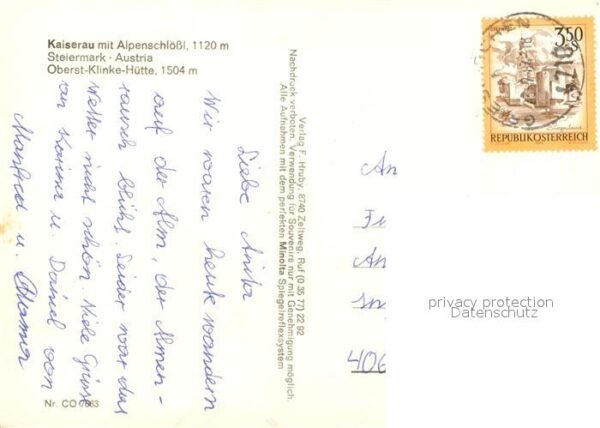 Kaiserau mit Alpenschlößl, 1120 m
Steiermark · Austria
Oberst-Klinke-Hütte, 1504 m
Liebe Anita
Wir waren heute wandern
auf der Alm, der Almen-
rausch blüht. Leider war das
Wetter nicht schön. Viele Grüsse
an Karina u. Daniel von
Manfred u.
Nr. CO
Verlag F. Hruby, 8740 Zeltweg, Ruf (0 35 77) 22 92
Nachdruck verboten. Verwendung für Souvenirs nur mit Genehmigung möglich.
Alle Aufnahmen mit dem perfekten Minolta Spiegelreflexsystem
3.50
S
REPUBLIK ÖSTERREICH
An
406
privacy protection
Datenschutz